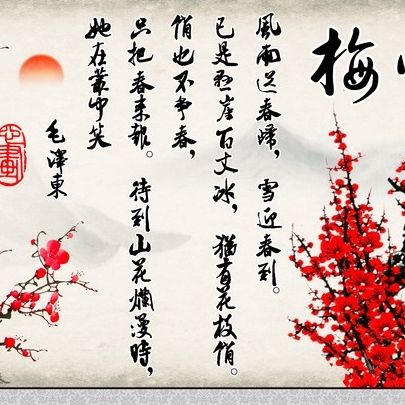 梅
風雨送春歸,雪迎春到。
已是懸崖百丈冰,猶有花枝俏。
俏也不爭春,
只把春来報。待到山花爛漫時,
她在叢中笑
毛澤東